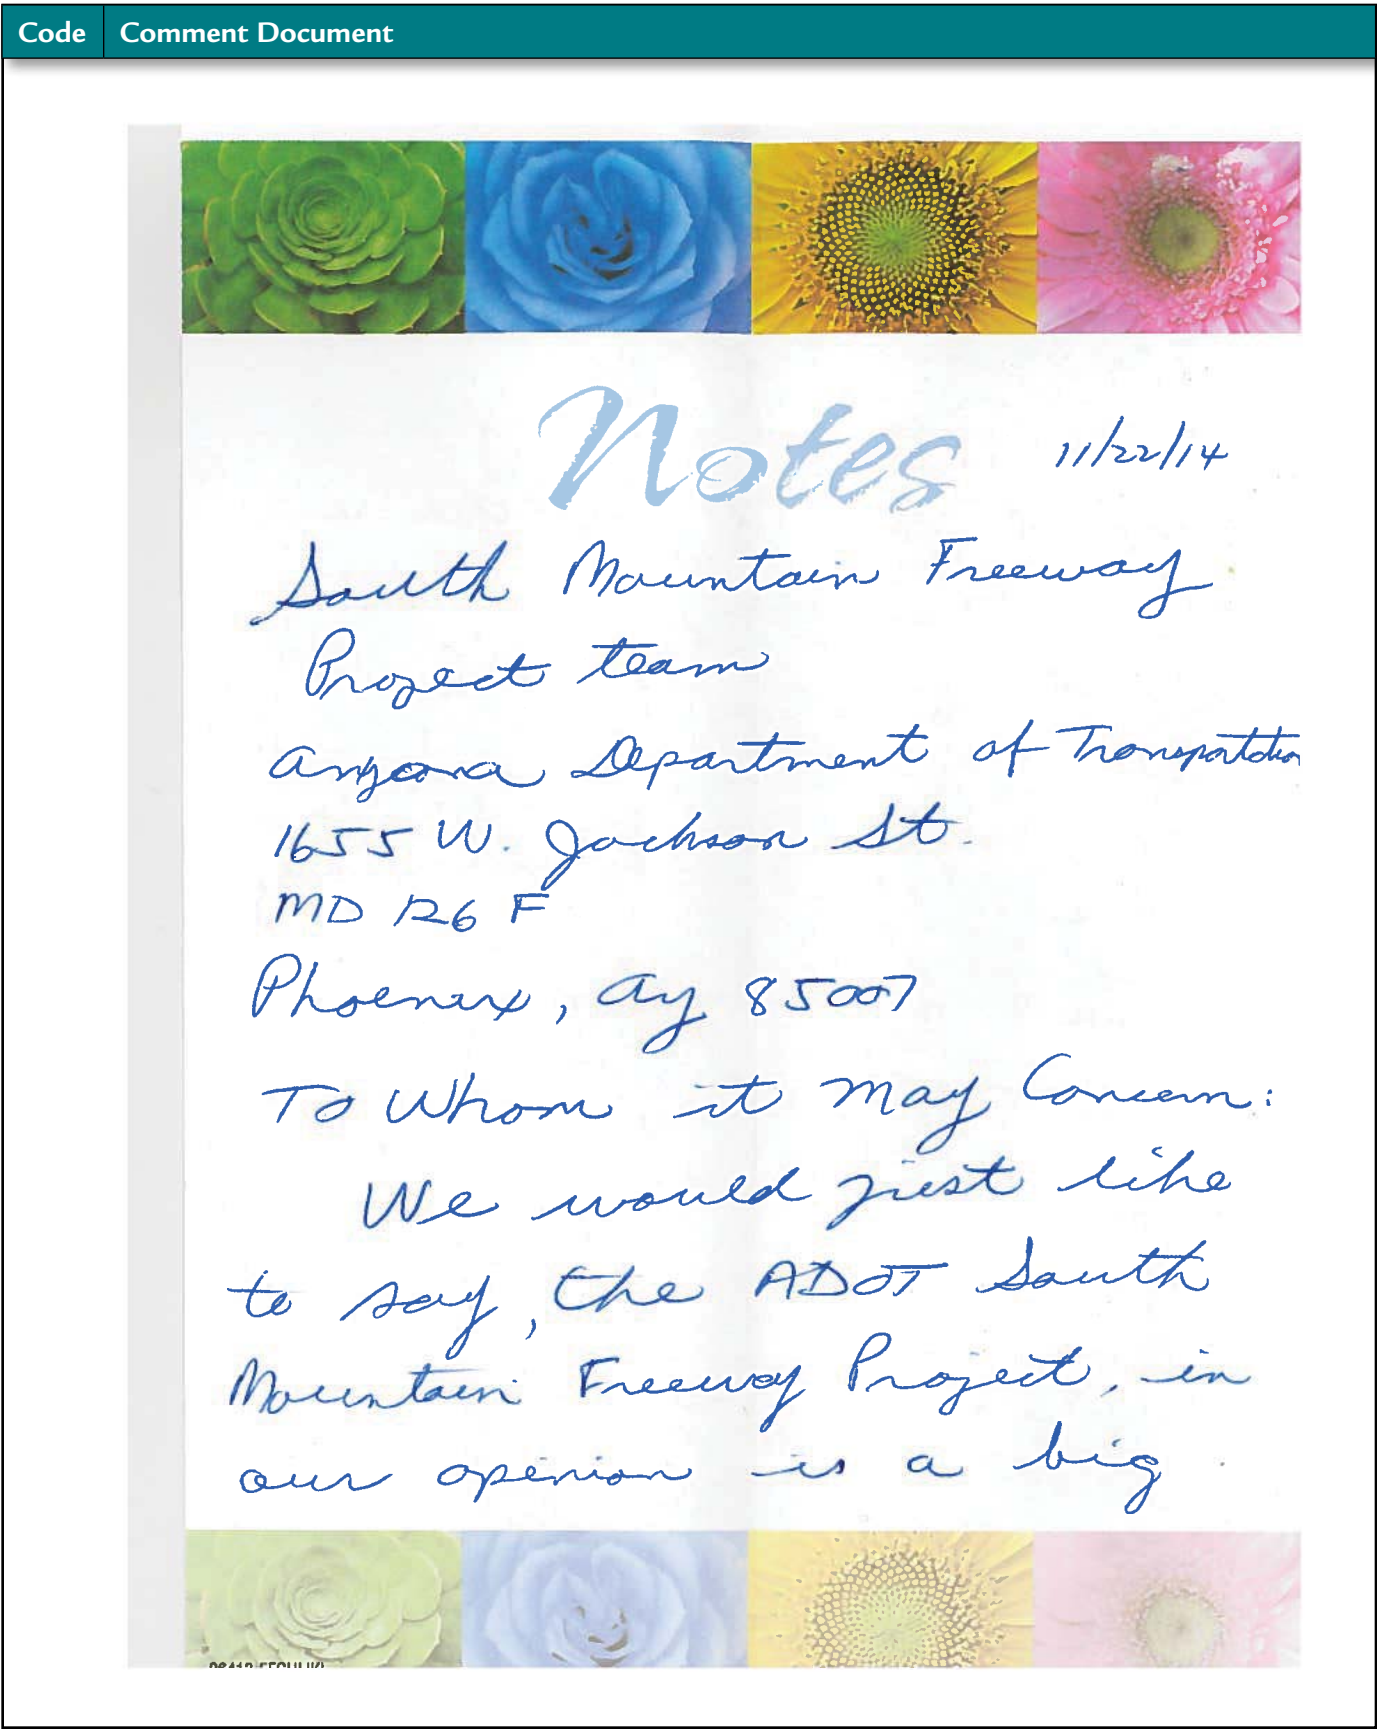 Code Comment Document
Notes 11/22/14
South Mountain Freeway
Project team
Arizona Department of Transportation
1655 W. Jackson St.
MD 126 F
Phoenix, Az 85007
To Whom it may Concern:
We would just like
to say, the ADOT South
Mountain Freeway Project, in
our opinion is a big